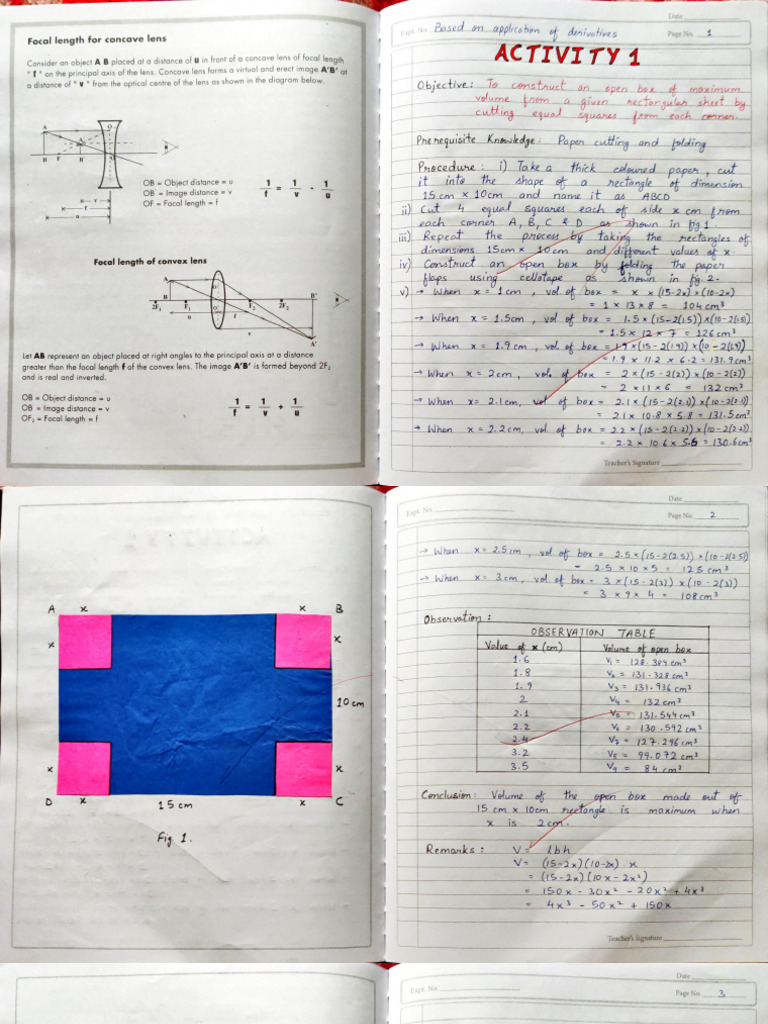 Focal length for concave lens
Consider an object A B placed at a distance of u in front of a concave lens of focal length
" f " on the principal axis of the lens. Concave lens forms a virtual and erect image A'B' at
a distance of " v " from the optical centre of the lens as shown in the diagram below.
OB = Object distance = u
OB' = Image distance = v
OF = Focal length = f
1/f = 1/v - 1/u
Focal length of convex lens
2F₁ F₁ F₂ 2F₂
Let AB represent an object placed at right angles to the principal axis at a distance
greater than the focal length f of the convex lens. The image A'B' is formed beyond 2F₂
and is real and inverted.
OB = Object distance = u
OB' = Image distance = v
OF₂ = Focal length = f
1/f = 1/v + 1/u
Date
Expt. No. Based on application of derivatives Page No. 1
ACTIVITY 1
Objective: To construct an open box of maximum
volume from a given rectangular sheet by
cutting equal squares from each corner.
Prerequisite Knowledge: Paper cutting and folding
Procedure: i) Take a thick coloured paper, cut
it into the shape of a rectangle of dimension
15 cm × 10 cm and name it as ABCD
ii) Cut 4 equal squares each of side x cm from
each corner A, B, C & D as shown in fig 1.
iii) Repeat the process by taking the rectangles of
dimensions 15cm × 10cm and different values of x.
iv) Construct an open box by folding the paper
flaps using cellotape as shown in fig. 2.
v) → When x = 1cm, vol. of box = x × (15-2x)×(10-2x)
= 1 × 13 × 8 = 104 cm³
→ When x = 1.5cm, vol of box = 1.5 × (15-2(1.5))×(10-2(1.5))
= 1.5 × 12 × 7 = 126 cm³
→ When x = 1.9cm, vol of box = 1.9 × (15-2(1.9))×(10-2(1.9))
= 1.9 × 11.2 × 6.2 = 131.9 cm³
→ When x = 2cm, vol. of box = 2 × (15-2(2))×(10-2(2))
= 2 × 11 × 6 = 132 cm³
→ When x = 2.1cm, vol of box = 2.1 × (15-2(2.1))×(10-2(2.1))
= 2.1 × 10.8 × 5.8 = 131.5cm³
→ When x = 2.2cm, vol of box = 2.2 × (15-2(2.2))×(10-2(2.2))
= 2.2 × 10.6 × 5.6 = 130.6cm³
Teacher's Signature
A x x B
x x
10 cm
x x
D x 15 cm x C
Fig 1.
Date
Expt. No. Page No. 2
→ When x = 2.5cm, vol of box = 2.5 × (15-2(2.5))×(10-2(2.5))
= 2.5 × 10 × 5 = 125 cm³
→ When x = 3cm, vol of box = 3 × (15-2(3))×(10-2(3))
= 3 × 9 × 4 = 108cm³
Observation:
OBSERVATION TABLE
Value of x (cm) Volume of open box
1.6 V₁ = 128.384 cm³
1.8 V₂ = 131.328 cm³
1.9 V₃ = 131.936 cm³
2 V₄ = 132 cm³
2.1 V₅ = 131.544 cm³
2.2 V₆ = 130.592 cm³
2.4 V₇ = 127.296 cm³
3.2 V₈ = 99.072 cm³
3.5 V₉ = 84 cm³
Conclusion: Volume of the open box made out of
15 cm × 10cm rectangle is maximum when
x is 2cm.
Remarks: V = lbh
V = (15-2x)(10-2x) x
= (15-2x)(10x-2x²)
= 150x - 30x² - 20x² + 4x³
= 4x³ - 50x² + 150x
Teacher's Signature
Date
Expt. No. Page No. 3